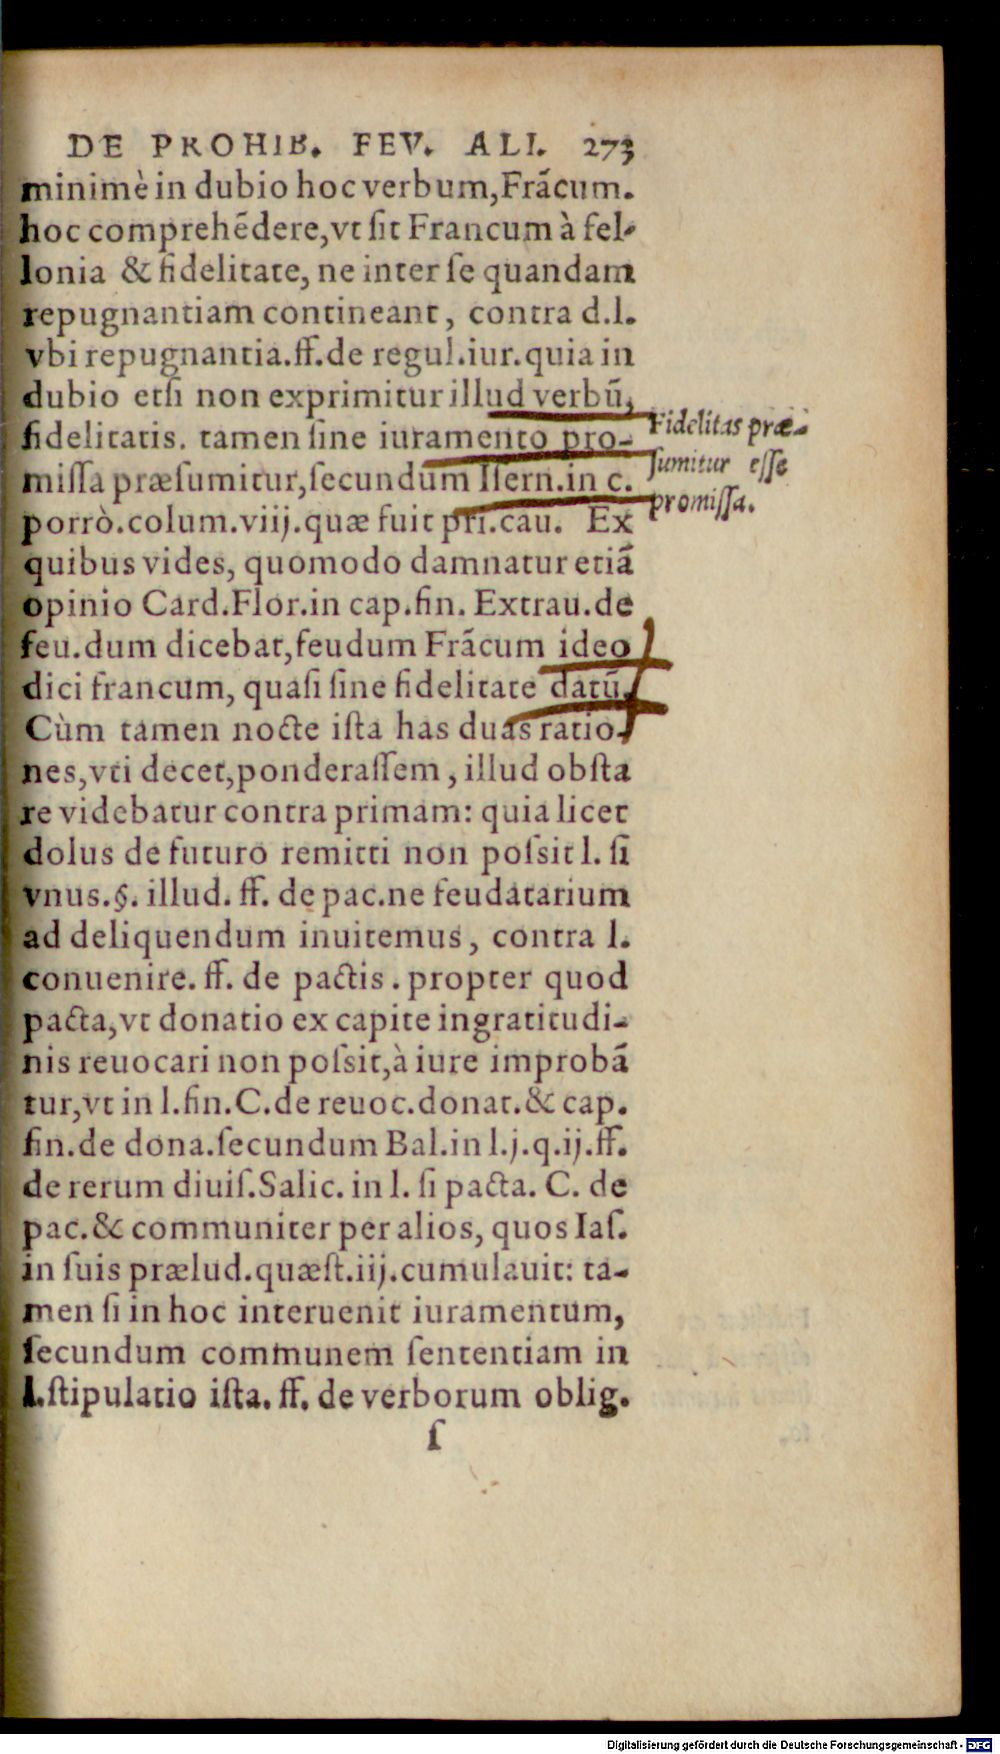 DE PROHIB. FEV. ALI. 273
minimè in dubio hoc verbum, Frãcum.
hoc comprehẽdere, vt ſit Francum à fel-
lonia & fidelitate, ne inter ſe quandam
repugnantiam contineant, contra d.l.
vbi repugnantia.ff.de regul.iur.quia in
dubio etſi non exprimitur illud verbũ,
fidelitatis. tamen ſine iuramento pro-
miſſa præſumitur, ſecundum Iſern.in c.
porrò.colum.viij.quæ fuit pri.cau. Ex
quibus vides, quomodo damnatur etiã
opinio Card.Flor.in cap.fin. Extrau.de
feu.dum dicebat, feudum Frãcum ideo
dici francum, quaſi ſine fidelitate datũ.
Cùm tamen nocte iſta has duas ratio-
nes, vti decet, ponderaſſem, illud obſta
re videbatur contra primam: quia licet
dolus de futuro remitti non poſsit l. ſi
vnus.§. illud. ff. de pac.ne feudatarium
ad deliquendum inuitemus, contra l.
conuenire. ff. de pactis. propter quod
pacta, vt donatio ex capite ingratitudi-
nis reuocari non poſsit, à iure improbã
tur, vt in l.fin.C.de reuoc.donat.& cap.
fin.de dona.ſecundum Bal.in l.j.q.ij.ff.
de rerum diuiſ.Salic. in l. ſi pacta. C. de
pac.& communiter per alios, quos Iaſ.
in ſuis prælud.quæſt.iij.cumulauit: ta-
men ſi in hoc interuenit iuramentum,
ſecundum communem ſententiam in
l.ſtipulatio iſta. ff. de verborum oblig.
ſ
Fidelitas præ-
ſumitur eſſe
promiſſa.
Digitalisierung gefördert durch die Deutsche Forschungsgemeinschaft - DFG